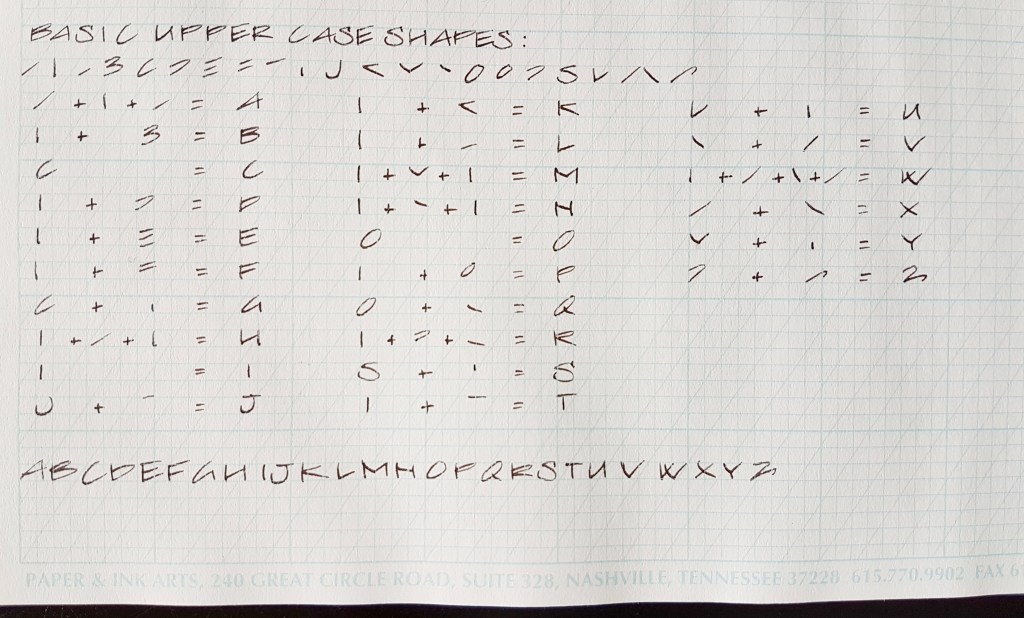 BASIC UPPER CASE SHAPES :
/ | / 3 C ? Ξ = - ı J < v \ O O ? S v / \ /
/ + | + / = A
| + 3 = B
C = C
| + ? = D
| + Ξ = E
| + = = F
C + ı = G
| + / + | = H
| = I
U + - = J
| + < = K
| + _ = L
| + v + | = M
| + \ + | = N
O = O
| + O = P
O + \ = Q
| + ? + \ = R
S + ' = S
| + - = T
v + | = U
\ + / = V
| + / + \ + / = W
/ + \ = X
v + ı = Y
? + / = Z
ABCDEFGHIJKLMNOPQRSTUVWXYZ
PAPER & INK ARTS, 240 GREAT CIRCLE ROAD, SUITE 328, NASHVILLE, TENNESSEE 37228 615.770.9902 FAX 61